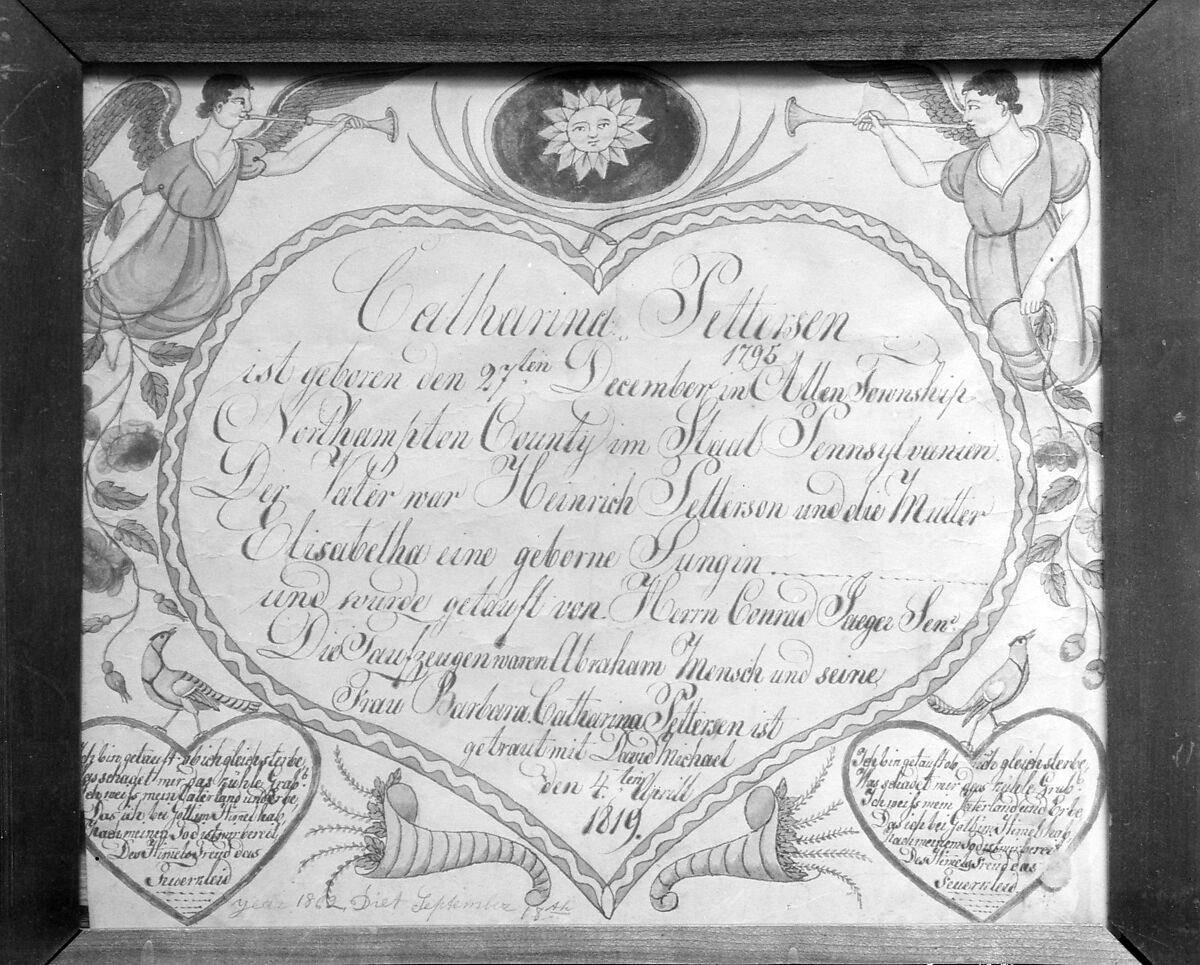 Catharina Pettersen
1795
ist geboren den 27ten December in Allen Township
Northampton County im Staat Pennsylvanien.
Der Vater war Heinrich Petterson und die Mutter
Elisabetha eine geborne Jungin
und wurde getauft von Herrn Conrad Jaeger Senr.
Die Taufzeugen waren Abraham Mensch und seine
Frau Barbara. Catharina Pettersen ist
getraut mit David Michael
den 4ten Aprill
1819.
Ich bin getauft ob ich gleich sterbe
Was schadet mir das kühle Grab
Ich weiss mein Vaterland und Erbe
Das ich bei Gott im Himel hab
Nach meinem Tod ist mir bereit
Des Himels Freud das
Feuerkleid
Ich bin getauft ob ich gleich sterbe
Was schadet mir das kühle Grab
Ich weiss mein Vaterland und Erbe
Das ich bei Gott im Himel hab
Nach meinem Tod ist mir bereit
Des Himels Freud das
Feuerkleid
year 1862 Diet September 18th